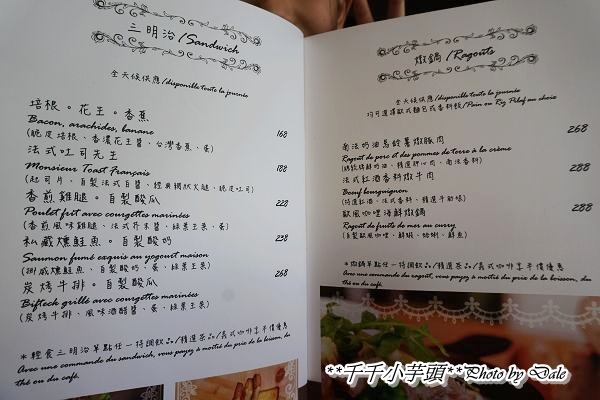 三明治/Sandwich
全天候供應/disponible toute la journée
培根。花生。香蕉
Bacon, arachides, banane 168
(脆皮培根、香濃花生醬、台灣香蕉、蛋)
法式吐司先生
Monsieur Toast Français 188
(起司片、自製法式白醬、經典捆狀火腿、脆皮吐司)
香煎雞腿。自製酸瓜 228
Poulet frit avec courgettes marinées
(香煎風味雞腿、法式芥末醬、綠葉生菜、蛋)
私藏燻鮭魚。自製酸奶 238
Saumon fumé exquis au yogourt maison
(挪威燻鮭魚、自製酸奶、蛋、綠葉生菜)
炭烤牛排。自製酸瓜 268
Bifteck grille avec courgettes marinées
(炭烤牛排、風味酒醋醬、蛋、綠葉生菜)
*輕食三明治單點任一特調飲品/精選茶/義式咖啡享半價優惠
Avec une commande du sandwich, vous payez à moitié du prix de la boisson, du
thé ou du café.
燉鍋/Ragouts
全天候供應/disponible toute la journée
均可選擇歐式麵包或香料飯/Pain ou Riz Pilaf au choix
268
南法奶油馬鈴薯燉豚肉
Ragoût de porc et des pommes de terre à la crème
288
法式紅酒香料燉牛肉
Boeuf bourguignon
(特選紅酒、法式香料、精選牛肋條)
288
歐風咖哩海鮮燉鍋
Ragoût de fruits de mer au curry
(自製歐風咖哩、鮮蝦、蛤蜊、鮮魚)
*燉鍋單點任一特調飲品/精選茶/義式咖啡享半價優惠
Avec une commande du ragoût, vous payez à moitié du prix de la boisson, du
thé ou du café.
**千千小芋頭**Photo by Dale